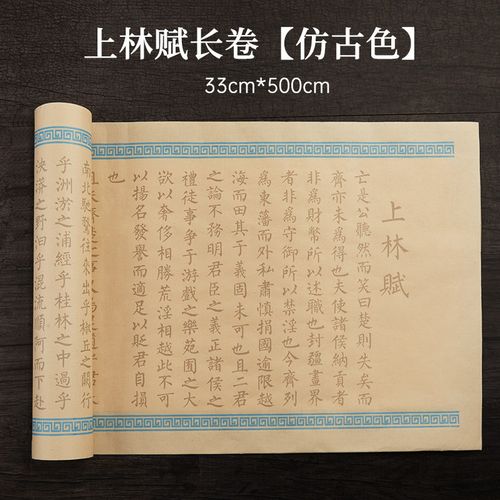 上林赋长卷【仿古色】
33cm*500cm
上林賦
亡是公聽然而笑曰楚則失矣而
齊亦未為得也夫使諸侯納貢者
非為財幣所以述職也封疆畫界
者非為守御所以禁淫也今齊列
為東藩而外私肅慎捐國逾限越
海而田其于義固未可也且二君
之論不務明君臣之義正諸侯之
禮徒事爭于游戲之樂苑囿之大
欲以奢侈相勝荒淫相越此不可
以揚名發譽而適足以貶君自損
也
南北馳騖往來出乎椒丘之闕行
乎洲淤之浦經乎桂林之中過乎
泱漭之野汩乎混流順阿而下赴